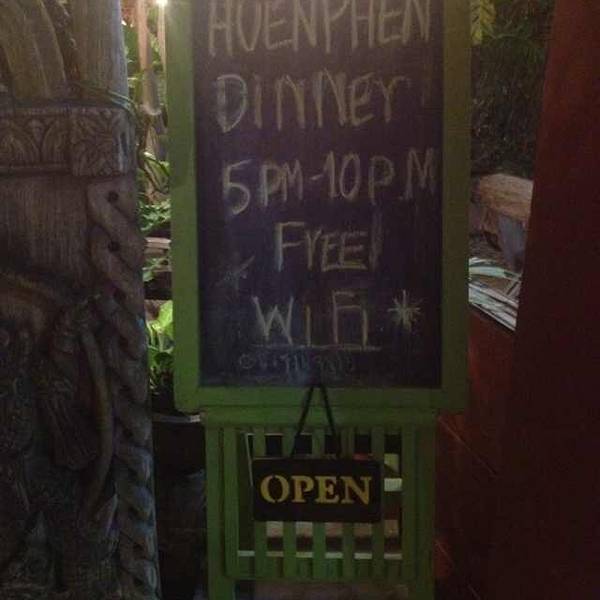 HUENPHEN
DINNEr
5 PM-10 P.M
FrEE!
WIFi
OPEN